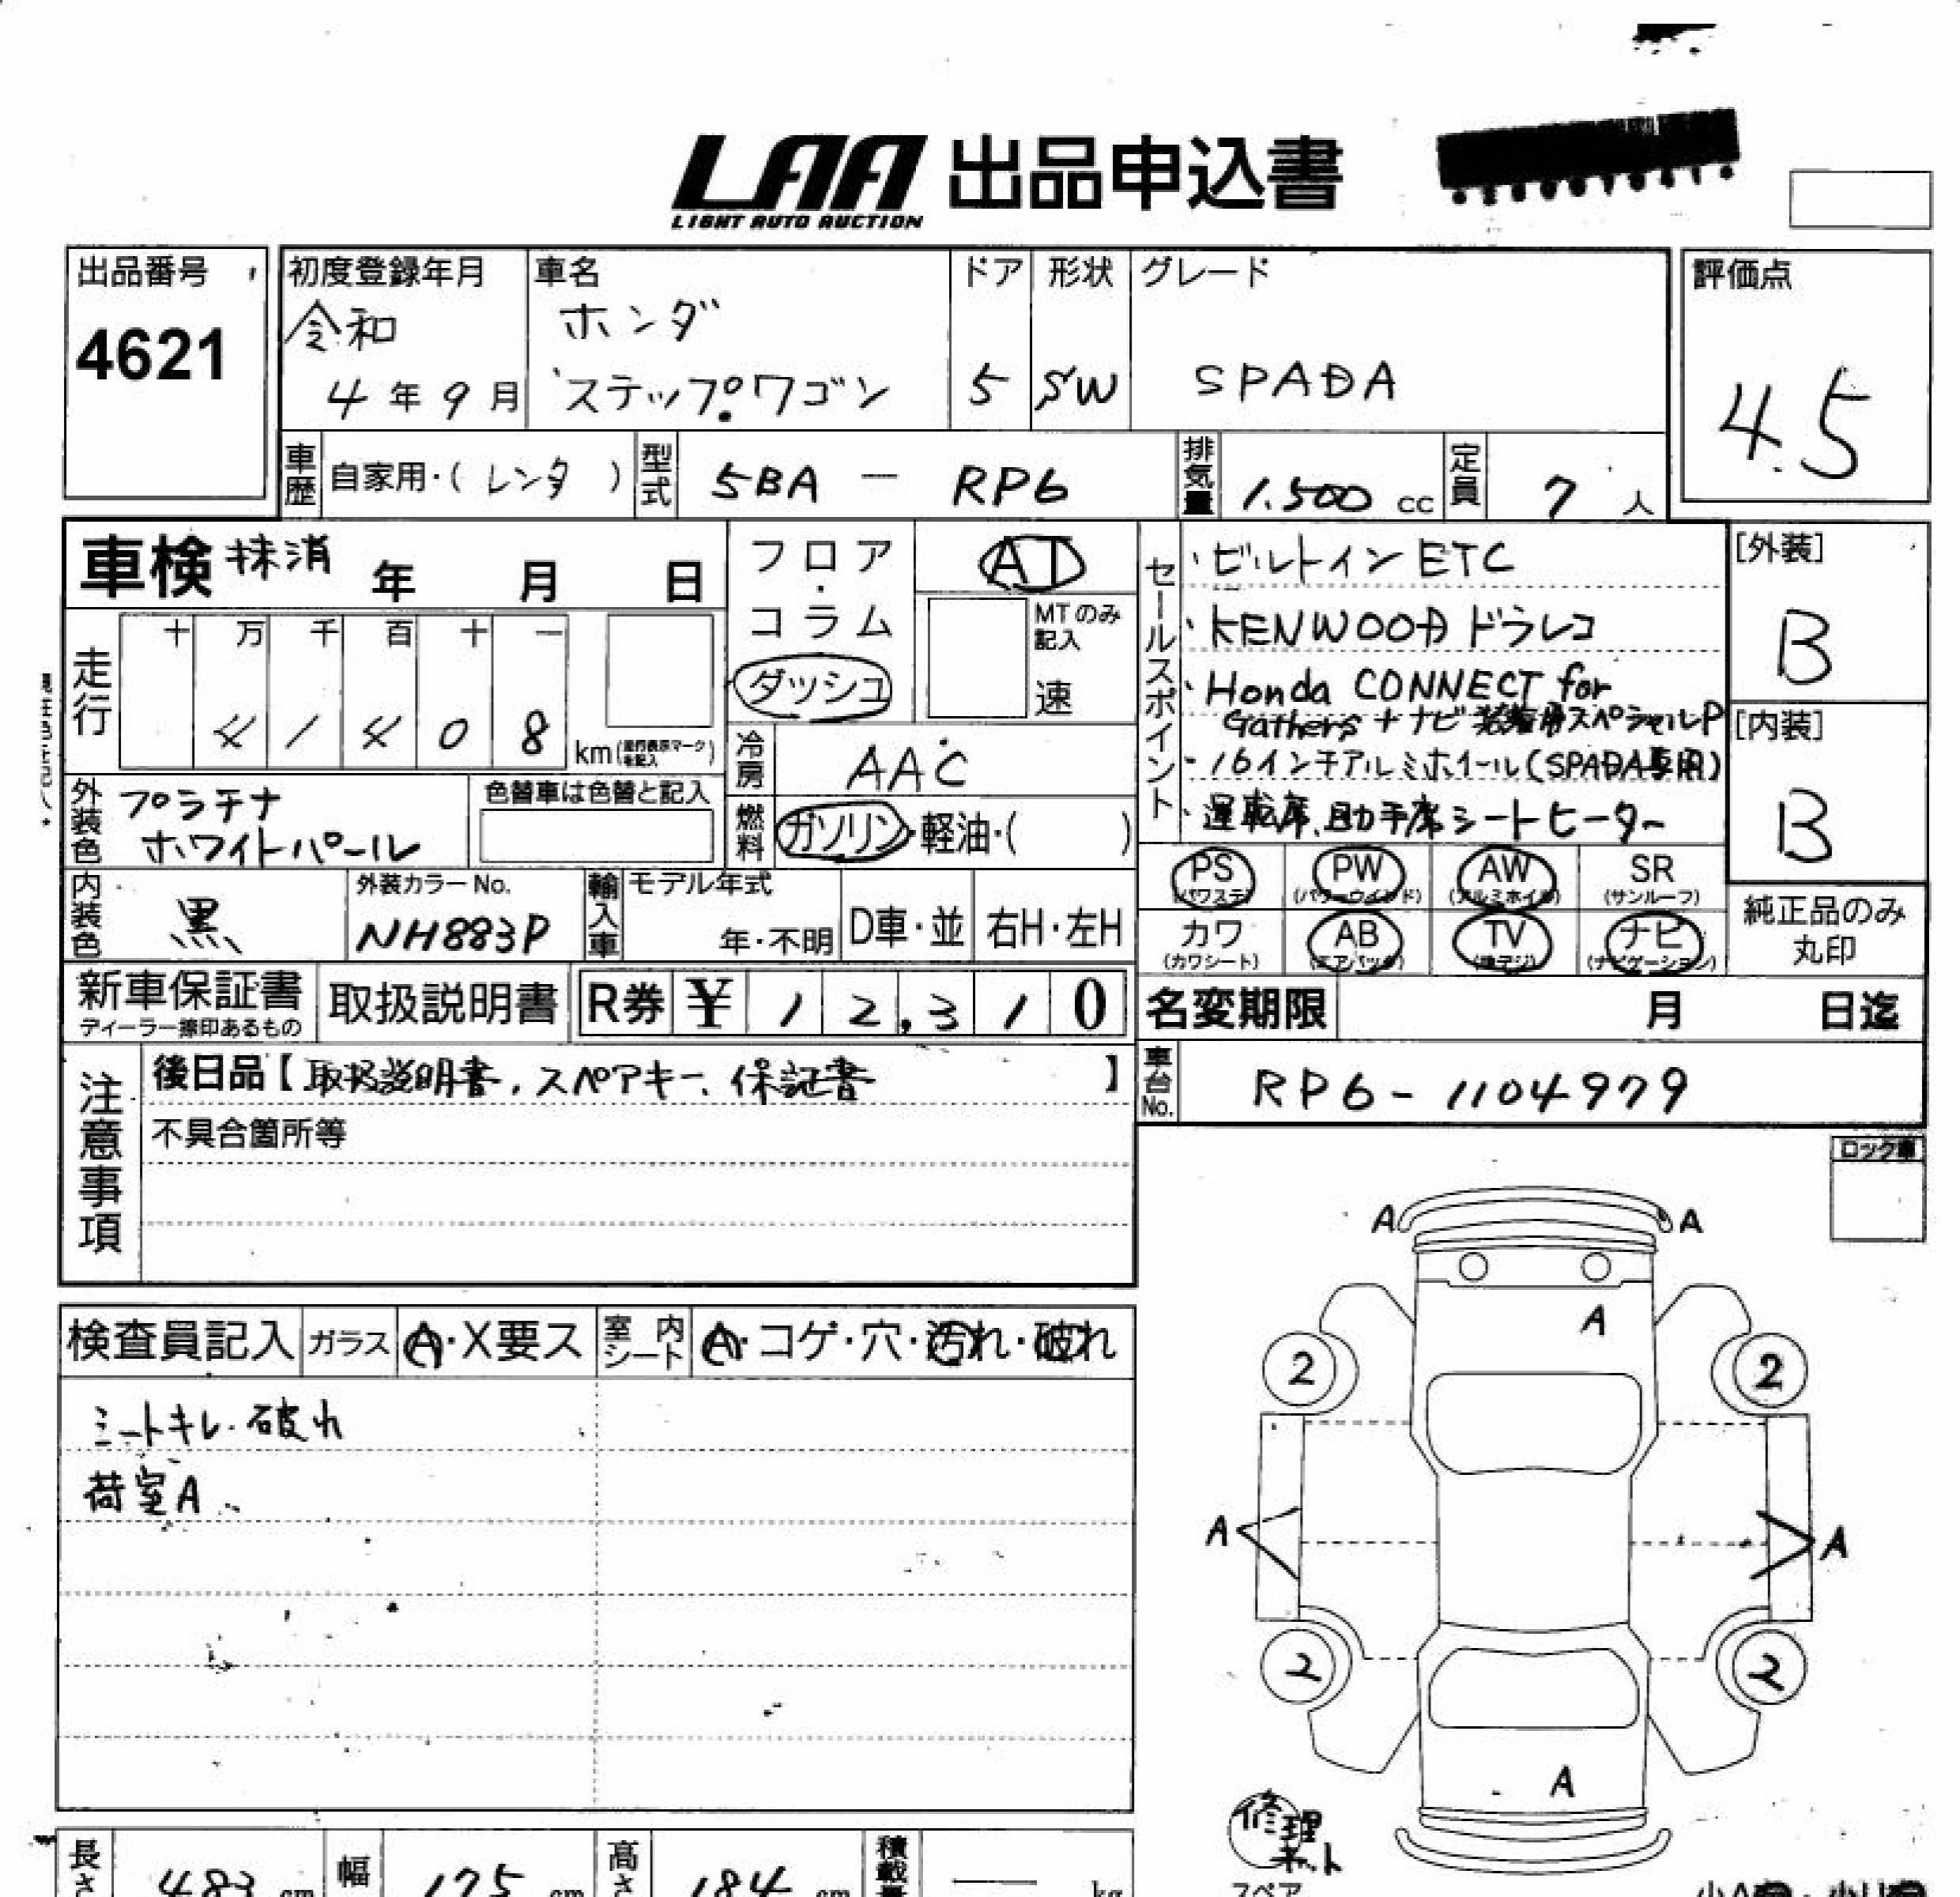 LAA 出品申込書
LIGHT AUTO AUCTION
出品番号
4621
初度登録年月
令和
4年9月
車名
ホンダ
ステップワゴン
ドア
5
形状
SW
グレード
SPADA
評価点
4.5
車歴 自家用・(レンタ)
型式 5BA - RP6
排気量 1.500 cc
定員 7人
車検 抹消 年 月 日
フロア・コラム
ダッシュ
AT
MTのみ記入
速
走行
十 万 千 百 十 一
4 1 4 0 8 km
冷房 AAC
燃料 ガソリン・軽油・( )
外装色 プラチナ
ホワイトパール
色替車は色替と記入
内装色 黒
外装カラーNo.
NH883P
輸入車
モデル年式
年・不明
D車・並
右H・左H
新車保証書
ディーラー捺印あるもの
取扱説明書
R券 ¥ 12,310
セールスポイント
・ビルトインETC
・KENWOOD ドラレコ
・Honda CONNECT for
Gathers + ナビ装着用スペシャルP
・16インチアルミホイール(SPADA専用)
・運転席、助手席シートヒーター
[外装]
B
[内装]
B
PS
(パワステ)
PW
(パワーウインド)
AW
(アルミホイル)
SR
(サンルーフ)
カワ
(カワシート)
AB
(エアバッグ)
TV
(地デジ)
ナビ
(ナビゲーション)
純正品のみ
丸印
名変期限 月 日迄
車台No. RP6-1104979
注意事項
後日品【取扱説明書、スペアキー、保証書】
不具合箇所等
ロック車
検査員記入
ガラス A・X要ス
室内シート A・コゲ・穴・汚れ・破れ
シートキレ・破れ
荷室A
A A
A
2 2
A A
2 2
A
修理キット
スペア
長さ 483 cm
幅 175 cm
高さ 184 cm
積載量 — kg